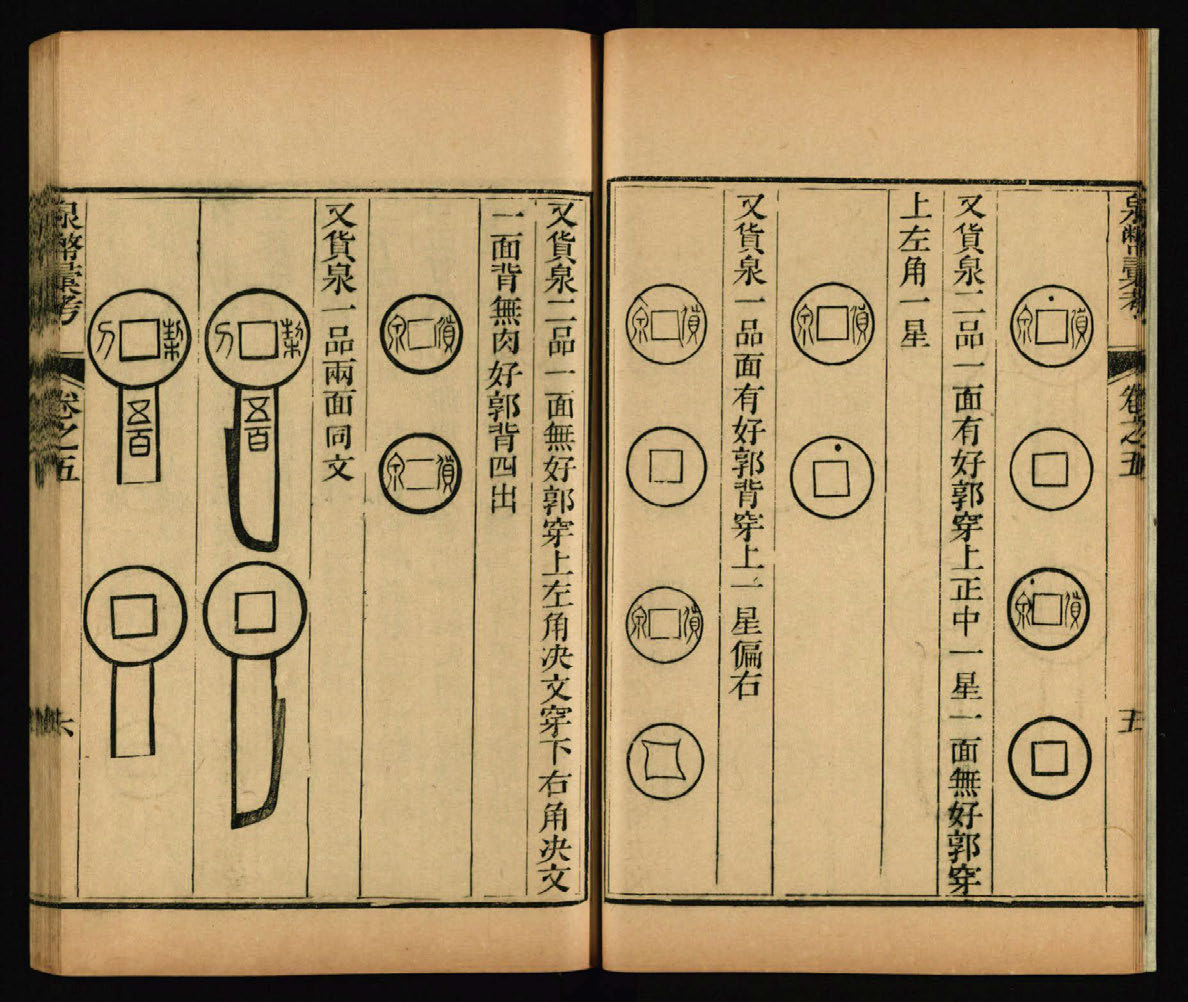 泉幣彙考
卷之五
五
貨泉
貨泉
又貨泉二品一面有好郭穿上正中一星一面無好郭穿
上左角一星
貨泉
又貨泉一品面有好郭背穿上一星偏右
貨泉
貨泉
又貨泉二品一面無好郭穿上左角决文穿下右角决文
一面背無肉好郭背四出
貨泉
貨泉
又貨泉一品兩面同文
栔刀
五百
栔刀
五百
泉幣彙考
卷之五
六